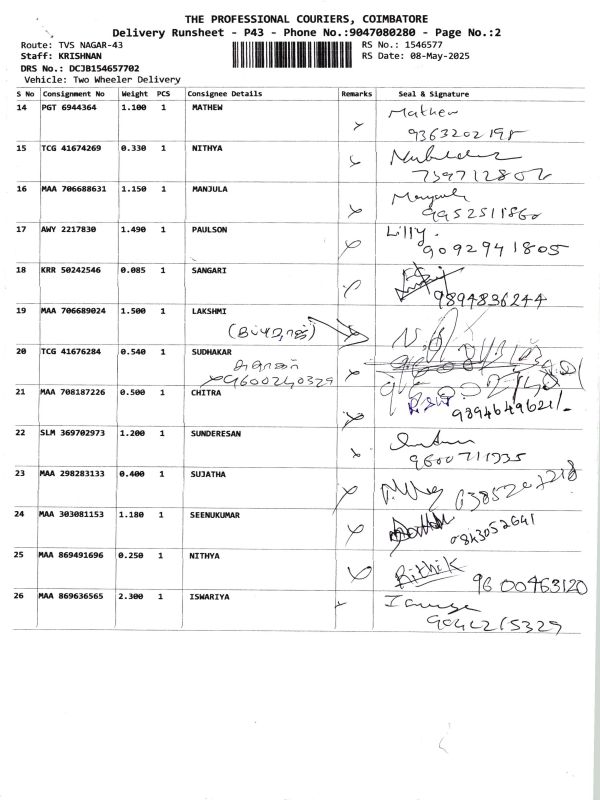 THE PROFESSIONAL COURIERS, COIMBATORE
Delivery Runsheet - P43 - Phone No.:9047080280 - Page No.:2
Route: TVS NAGAR-43 RS No.: 1546577
Staff: KRISHNAN RS Date: 08-May-2025
DRS No.: DCJB154657702
Vehicle: Two Wheeler Delivery
S No Consignment No Weight PCS Consignee Details Remarks Seal & Signature
14 PGT 6944364 1.100 1 MATHEW Mathew
9363202198
15 TCG 41674269 0.330 1 NITHYA
7397128026
16 MAA 706688631 1.150 1 MANJULA Manjula
9952511860
17 AWY 2217830 1.490 1 PAULSON Lilly.
9092941805
18 KRR 50242546 0.085 1 SANGARI
9894836244
19 MAA 706689024 1.500 1 LAKSHMI
20 TCG 41676284 0.540 1 SUDHAKAR
9600240329
21 MAA 708187226 0.500 1 CHITRA
9894649621/-
22 SLM 369702973 1.200 1 SUNDERESAN
9600711935
23 MAA 298283133 0.400 1 SUJATHA
24 MAA 303081153 1.180 1 SEENUKUMAR
9843052641
25 MAA 869491696 0.250 1 NITHYA Rithik
9600463120
26 MAA 869636565 2.300 1 ISWARIYA